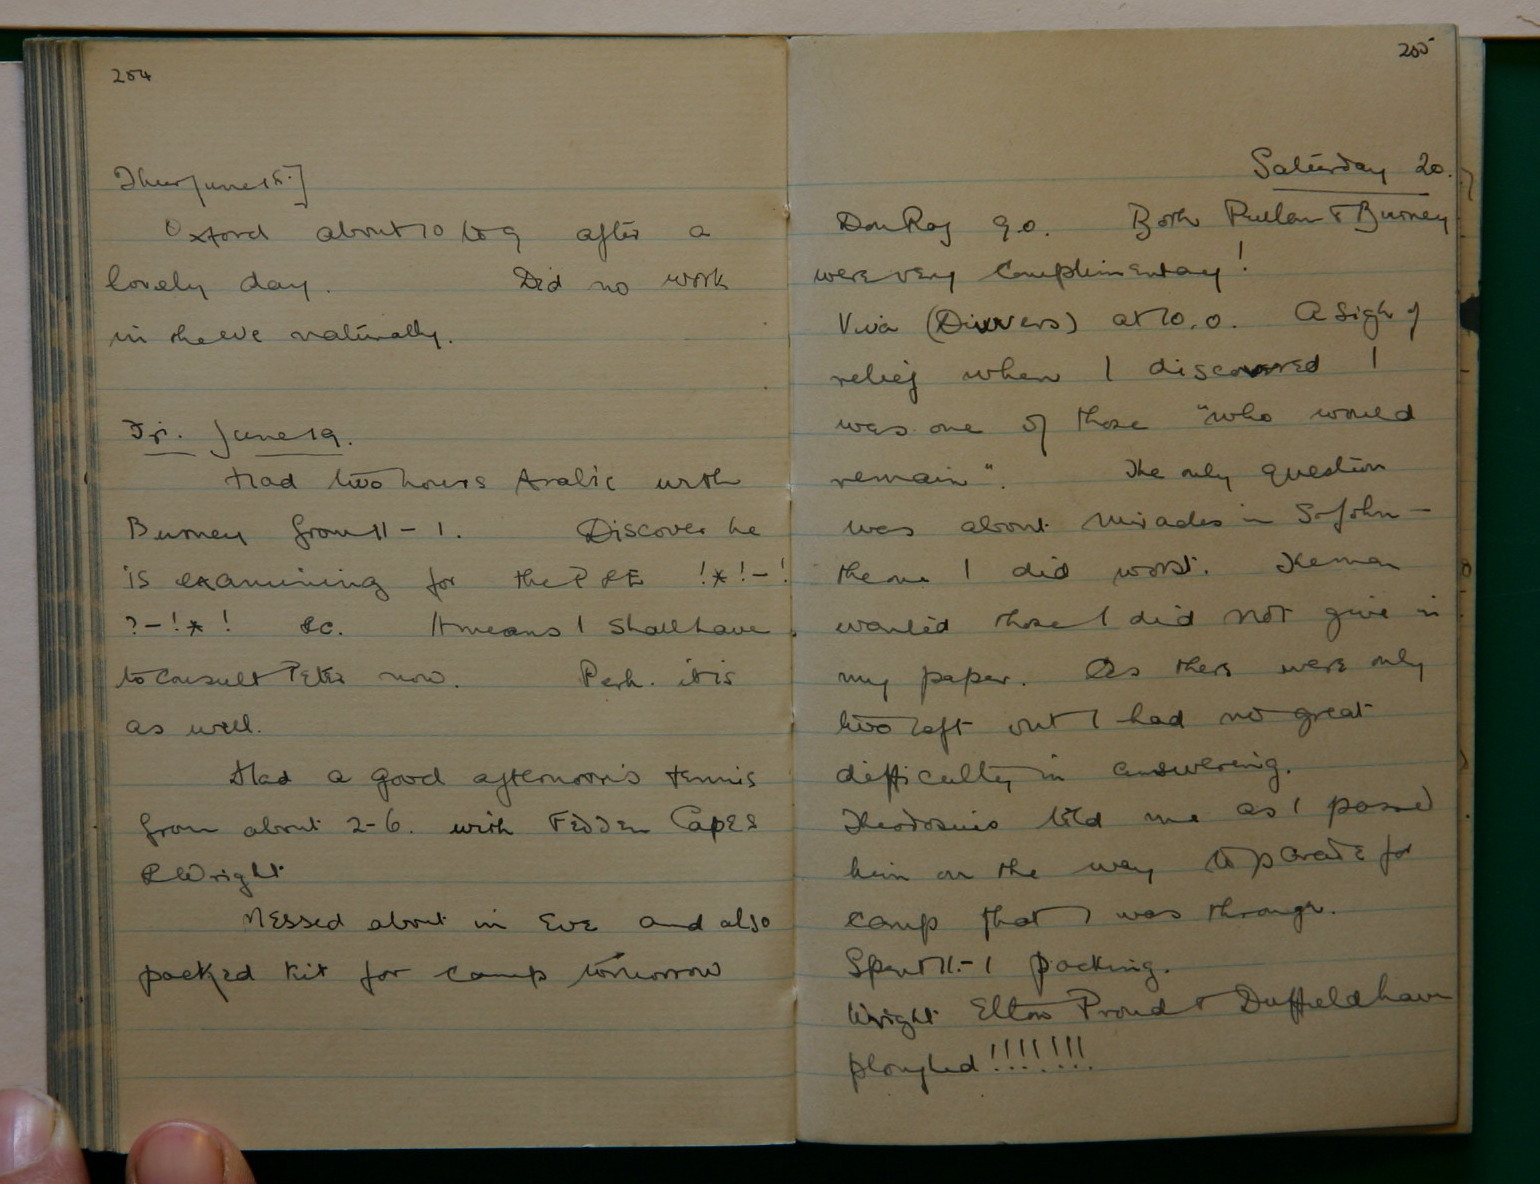 254
Thur June 18.]
Oxford about 10 to 9 after a
lovely day. Did no work
in the eve naturally.
Fri. June 19.
Had two hours Arabic with
Burney from 11 - 1. Discover he
is examining for the P & E !*!-!
?-!*! &c. It means I shall have
to consult Peter now. Perh. it is
as well.
Had a good afternoon's tennis
from about 2-6. with Fedden Capes
& Wright
Messed about in Eve and also
packed kit for camp tomorrow
255
Saturday 20.
Don Rag 9.0. Both Pullan & Burney
were very complimentary!
Viva (Divvers) at 10.0. A sigh of
relief when I discovered I
was one of those "who would
remain". The only question
was about Miracles in S. John -
the one I did worst. The man
wanted those I did not give in
my paper. As there were only
two left out I had no great
difficulty in answering.
Theodosius told me as I passed
him on the way to parade for
camp that I was through.
Spent 11.-1 packing.
Wright Elton Proud & Duffield have
ploughed !!!!!!!